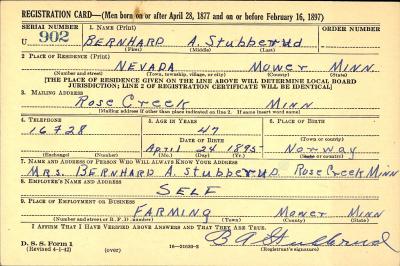 REGISTRATION CARD—(Men born on or after April 28, 1877 and on or before February 16, 1897)
SERIAL NUMBER 1. NAME (Print) ORDER NUMBER
U 902 BERNHARD A. Stubberud
(First) (Middle) (Last)
2. PLACE OF RESIDENCE (Print)
NEVADA Mower MINN
(Number and street) (Town, township, village, or city) (County) (State)
[THE PLACE OF RESIDENCE GIVEN ON THE LINE ABOVE WILL DETERMINE LOCAL BOARD
JURISDICTION; LINE 2 OF REGISTRATION CERTIFICATE WILL BE IDENTICAL]
3. MAILING ADDRESS
Rose Creek MINN
[Mailing address if other than place indicated on line 2. If same insert word same]
4. TELEPHONE 5. AGE IN YEARS 6. PLACE OF BIRTH
16F28 47
DATE OF BIRTH (Town or county)
April 24 1895 Norway
(Exchange) (Number) (Mo.) (Day) (Yr.) (State or country)
7. NAME AND ADDRESS OF PERSON WHO WILL ALWAYS KNOW YOUR ADDRESS
MRS. BERNHARD A. Stubberud Rose Creek Minn
8. EMPLOYER'S NAME AND ADDRESS
SELF
9. PLACE OF EMPLOYMENT OR BUSINESS
FARMING Mower Minn
(Number and street or R. F. D. number) (Town) (County) (State)
I AFFIRM THAT I HAVE VERIFIED ABOVE ANSWERS AND THAT THEY ARE TRUE.
D. S. S. Form 1 B A Stubberud
(Revised 4-1-42) (over) 16—21630-2 (Registrant's signature)